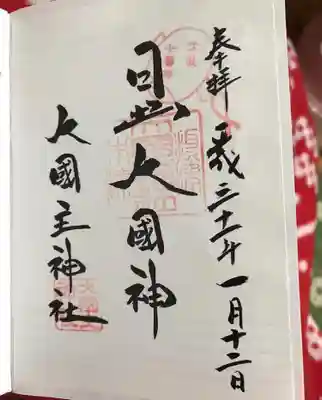 奉拝
平成三十一年一月十二日
日出大國神
大國主神社